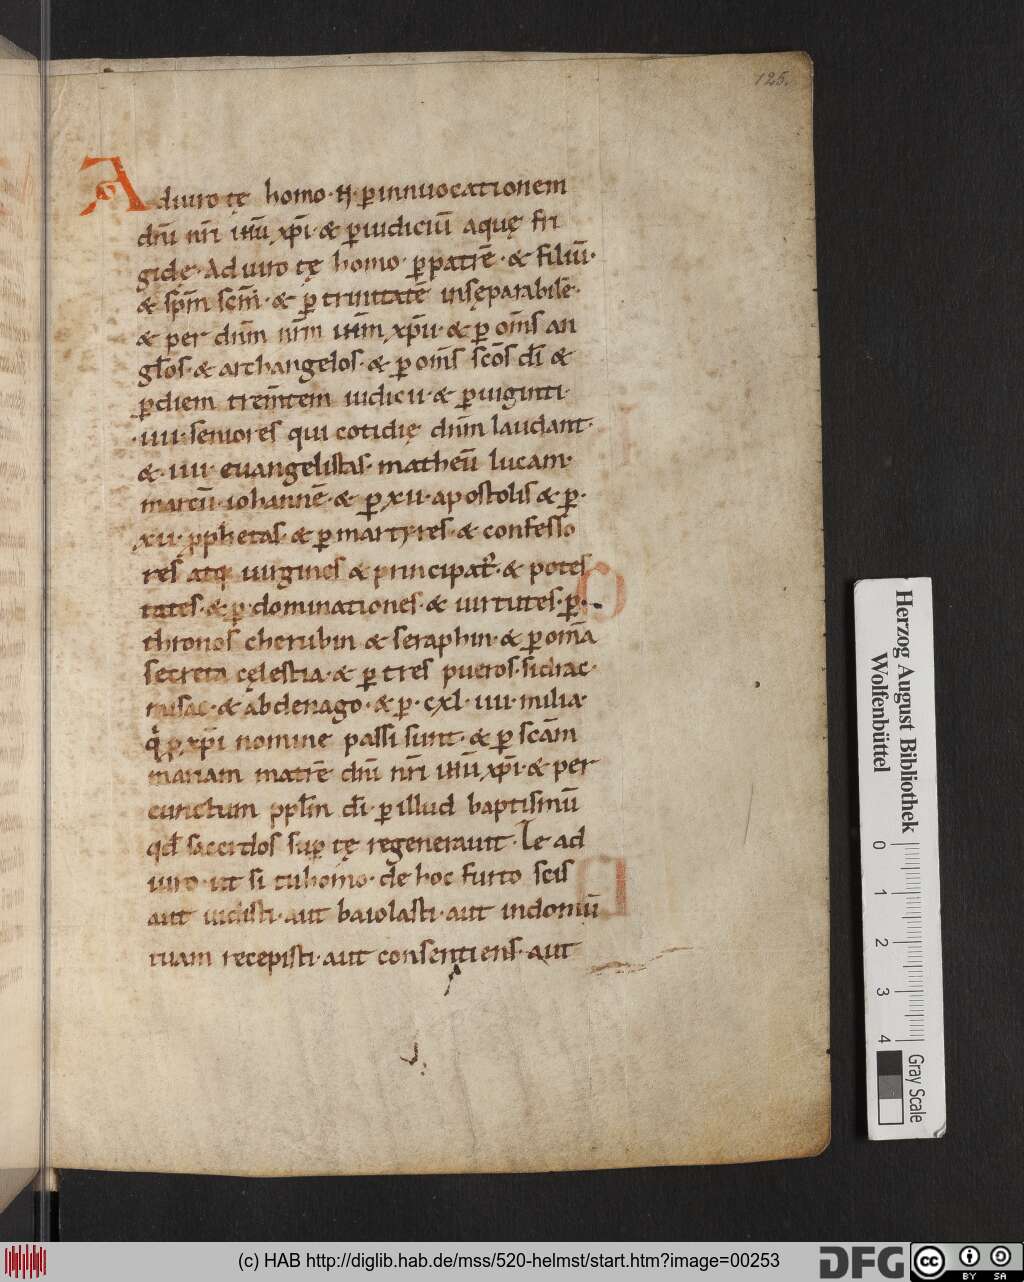 125.
Adiuro tę homo · N · ꝑinnuocationem
dn̄i nr̄i ih̄ū xp̄i · & ꝑiudiciū aquę fri
gidę · Adiuro tę homo · ꝑpatrē · & filiū ·
& sp̄m sc̄m · & ꝑ trinitatē insęparabilē ·
& per dn̄m nr̄m ih̄m xp̄u · & ꝑ om̄s an
gl̄os · & archangelos · & ꝑ om̄s sc̄os dī &
ꝑdiem trem̄tem iudicii · & ꝑuiginti ·
· iiii · seniores qui cotidię dn̄m laudant ·
& · iiii · euangelistas · matheū lucam ·
marcū · iohannē · & ꝑ xii · apostolis & ꝑ ·
xii · ꝓphetas · & ꝑ martyres · & confesso
res atq; uirgines & principat᷒ · & potes
tates · & ꝑ · dominationes · & uirtutes · ꝑ ·
thronos cherubin & seraphin · & ꝑ om̄a
secreta cęlestia · & ꝑ tres pueros · sidrac ·
misac · & abdenago · & ꝑ · cxl · iiii · milia ·
q̇ ꝑ xp̄i nomine passi sunt · & ꝑ scām
mariam matrē dn̄i nr̄i ih̄ū xp̄i · & per
cunctum ppl̄m dī · ꝑ illud baptismū
qd̄ sacerdos suꝑ tę regenerauit · Te ad
iuro · ut si tu homo · de hoc furto scis
aut uidisti · aut baiolasti · aut indomū
tuam recepisti · aut consentiens · aut
Herzog August Bibliothek
Wolfenbüttel
0 1 2 3 4
Gray Scale
(c) HAB http://diglib.hab.de/mss/520-helmst/start.htm?image=00253
DFG
cc BY SA